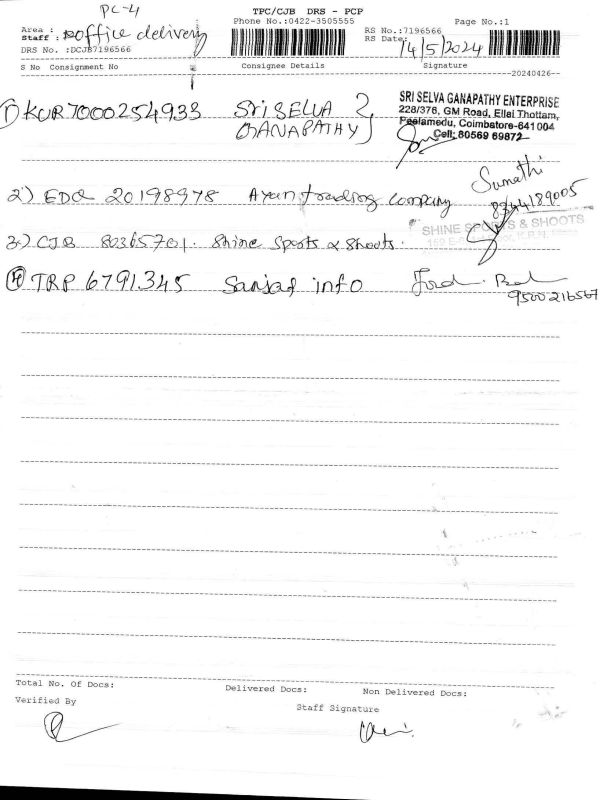 PC-4
TPC/CJB DRS - PCP
Phone No.:0422-3505555
Page No.:1
Area :
Staff : office delivery
RS No.:7196566
RS Date: 14/5/2024
DRS No. :DCJB7196566
S No Consignment No Consignee Details Signature
20240426
1) KUR7000254933 Sri SELVA GANAPATHY
SRI SELVA GANAPATHY ENTERPRISE
228/376, GM Road, Ellai Thottam,
Peelamedu, Coimbatore-641 004
Cell: 80569 69872
Sumathi
2) EDQ 20198978 Ayan trading company
8344189005
SHINE SPORTS & SHOOTS
3) CJB 80365701. Shine Sports & Shoots.
4) TRP 6791345 Sanjaf info
9500216567
Total No. Of Docs: Delivered Docs: Non Delivered Docs:
Verified By Staff Signature